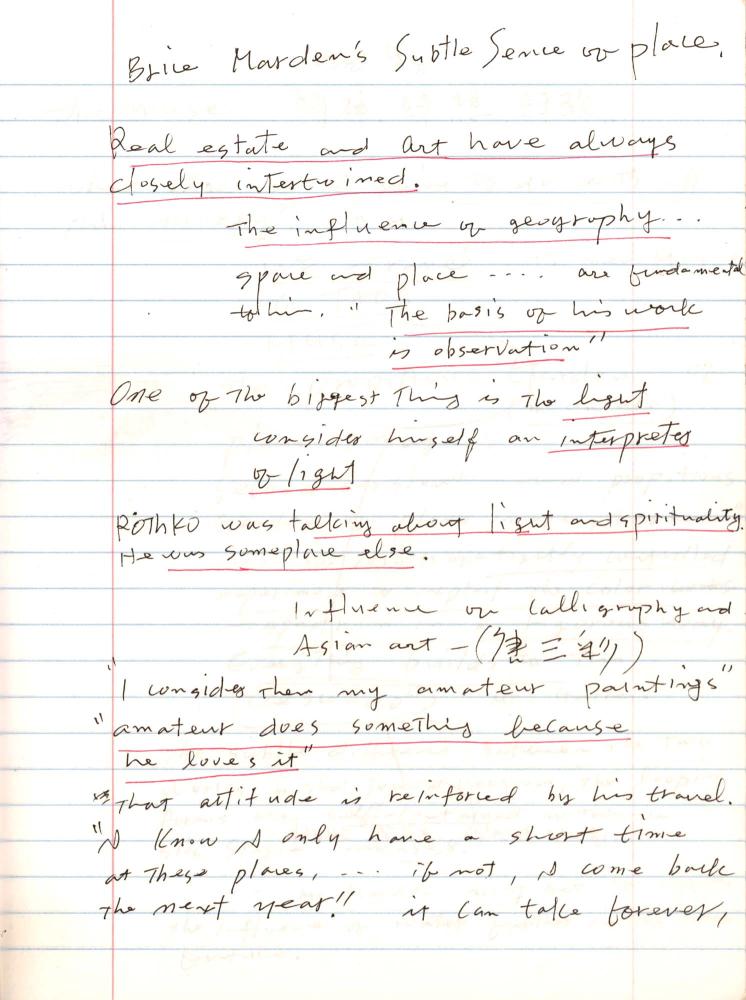 Brice Marden's Subtle Sence of place.
Real estate and Art have always
closely intertwined.
The influence of geography...
space and place .... are fundamental
to him. " The basis of his work
is observation"
One of the biggest thing is the light
consider himself an interpreter
of light
Rothko was talking about light and spirituality.
He was someplace else.
Influence of Calligraphy and
Asian art - (唐三彩)
"I consider them my amateur paintings"
"amateur does something because
he loves it"
"That attitude is reinforced by his travel.
"I know I only have a short time
at these places, ... if not, I come back
the next year!! it can take forever,